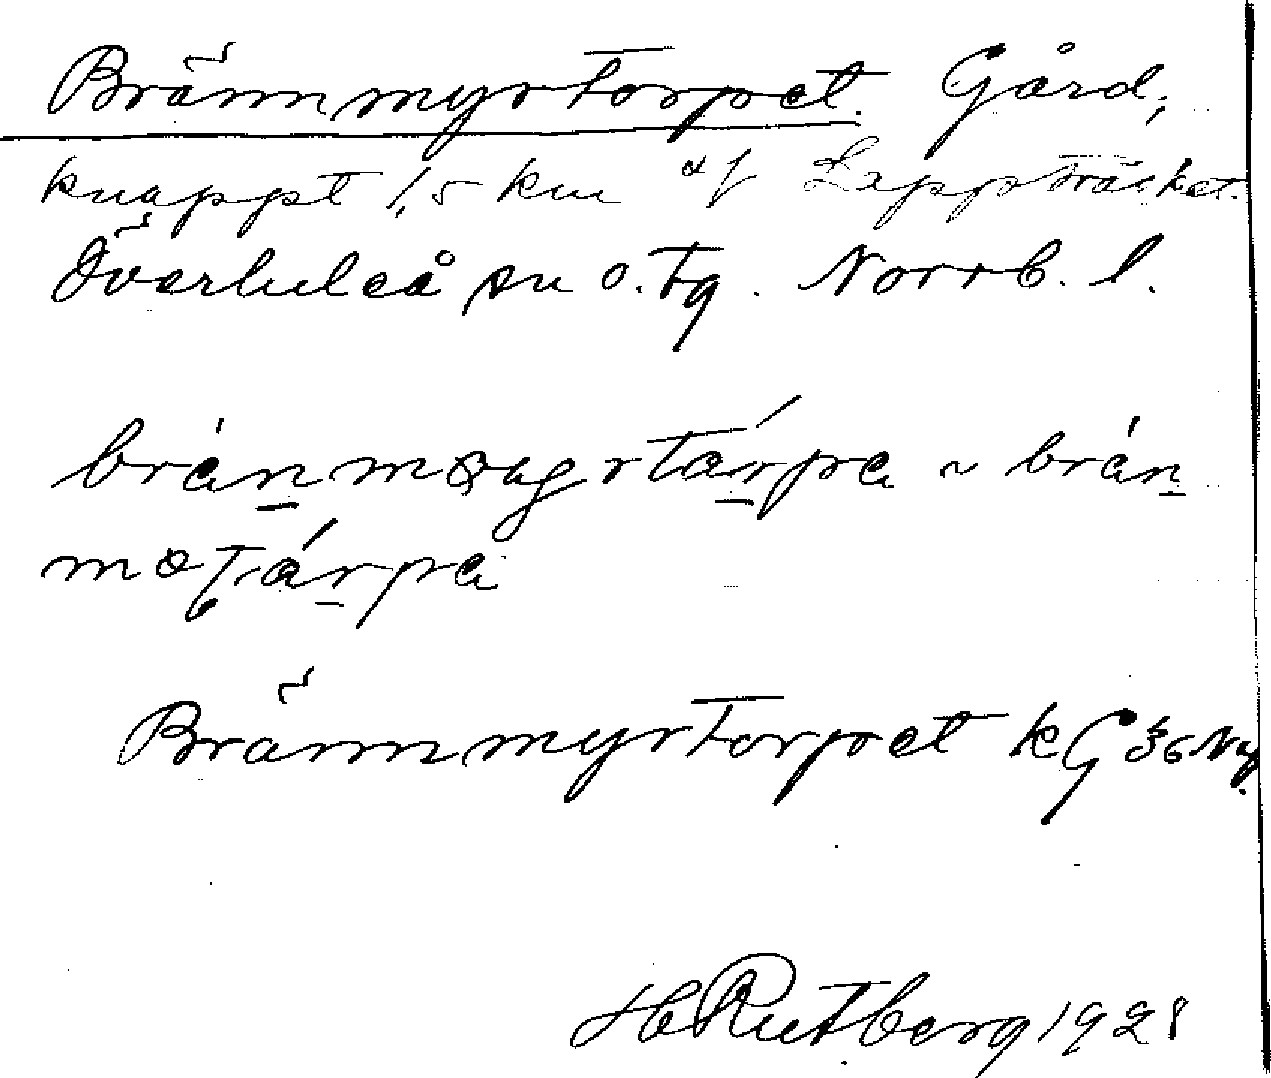 Brännmyrtorpet. Gård,
knappt 1,5 km af Lappträsket.
Överluleå sn o. tg. Norrb. l.
brànmøyrtárpa ~ bràn
motárpa
Brännmyrtorpet kG 36 Ny.
H Rutberg 1928